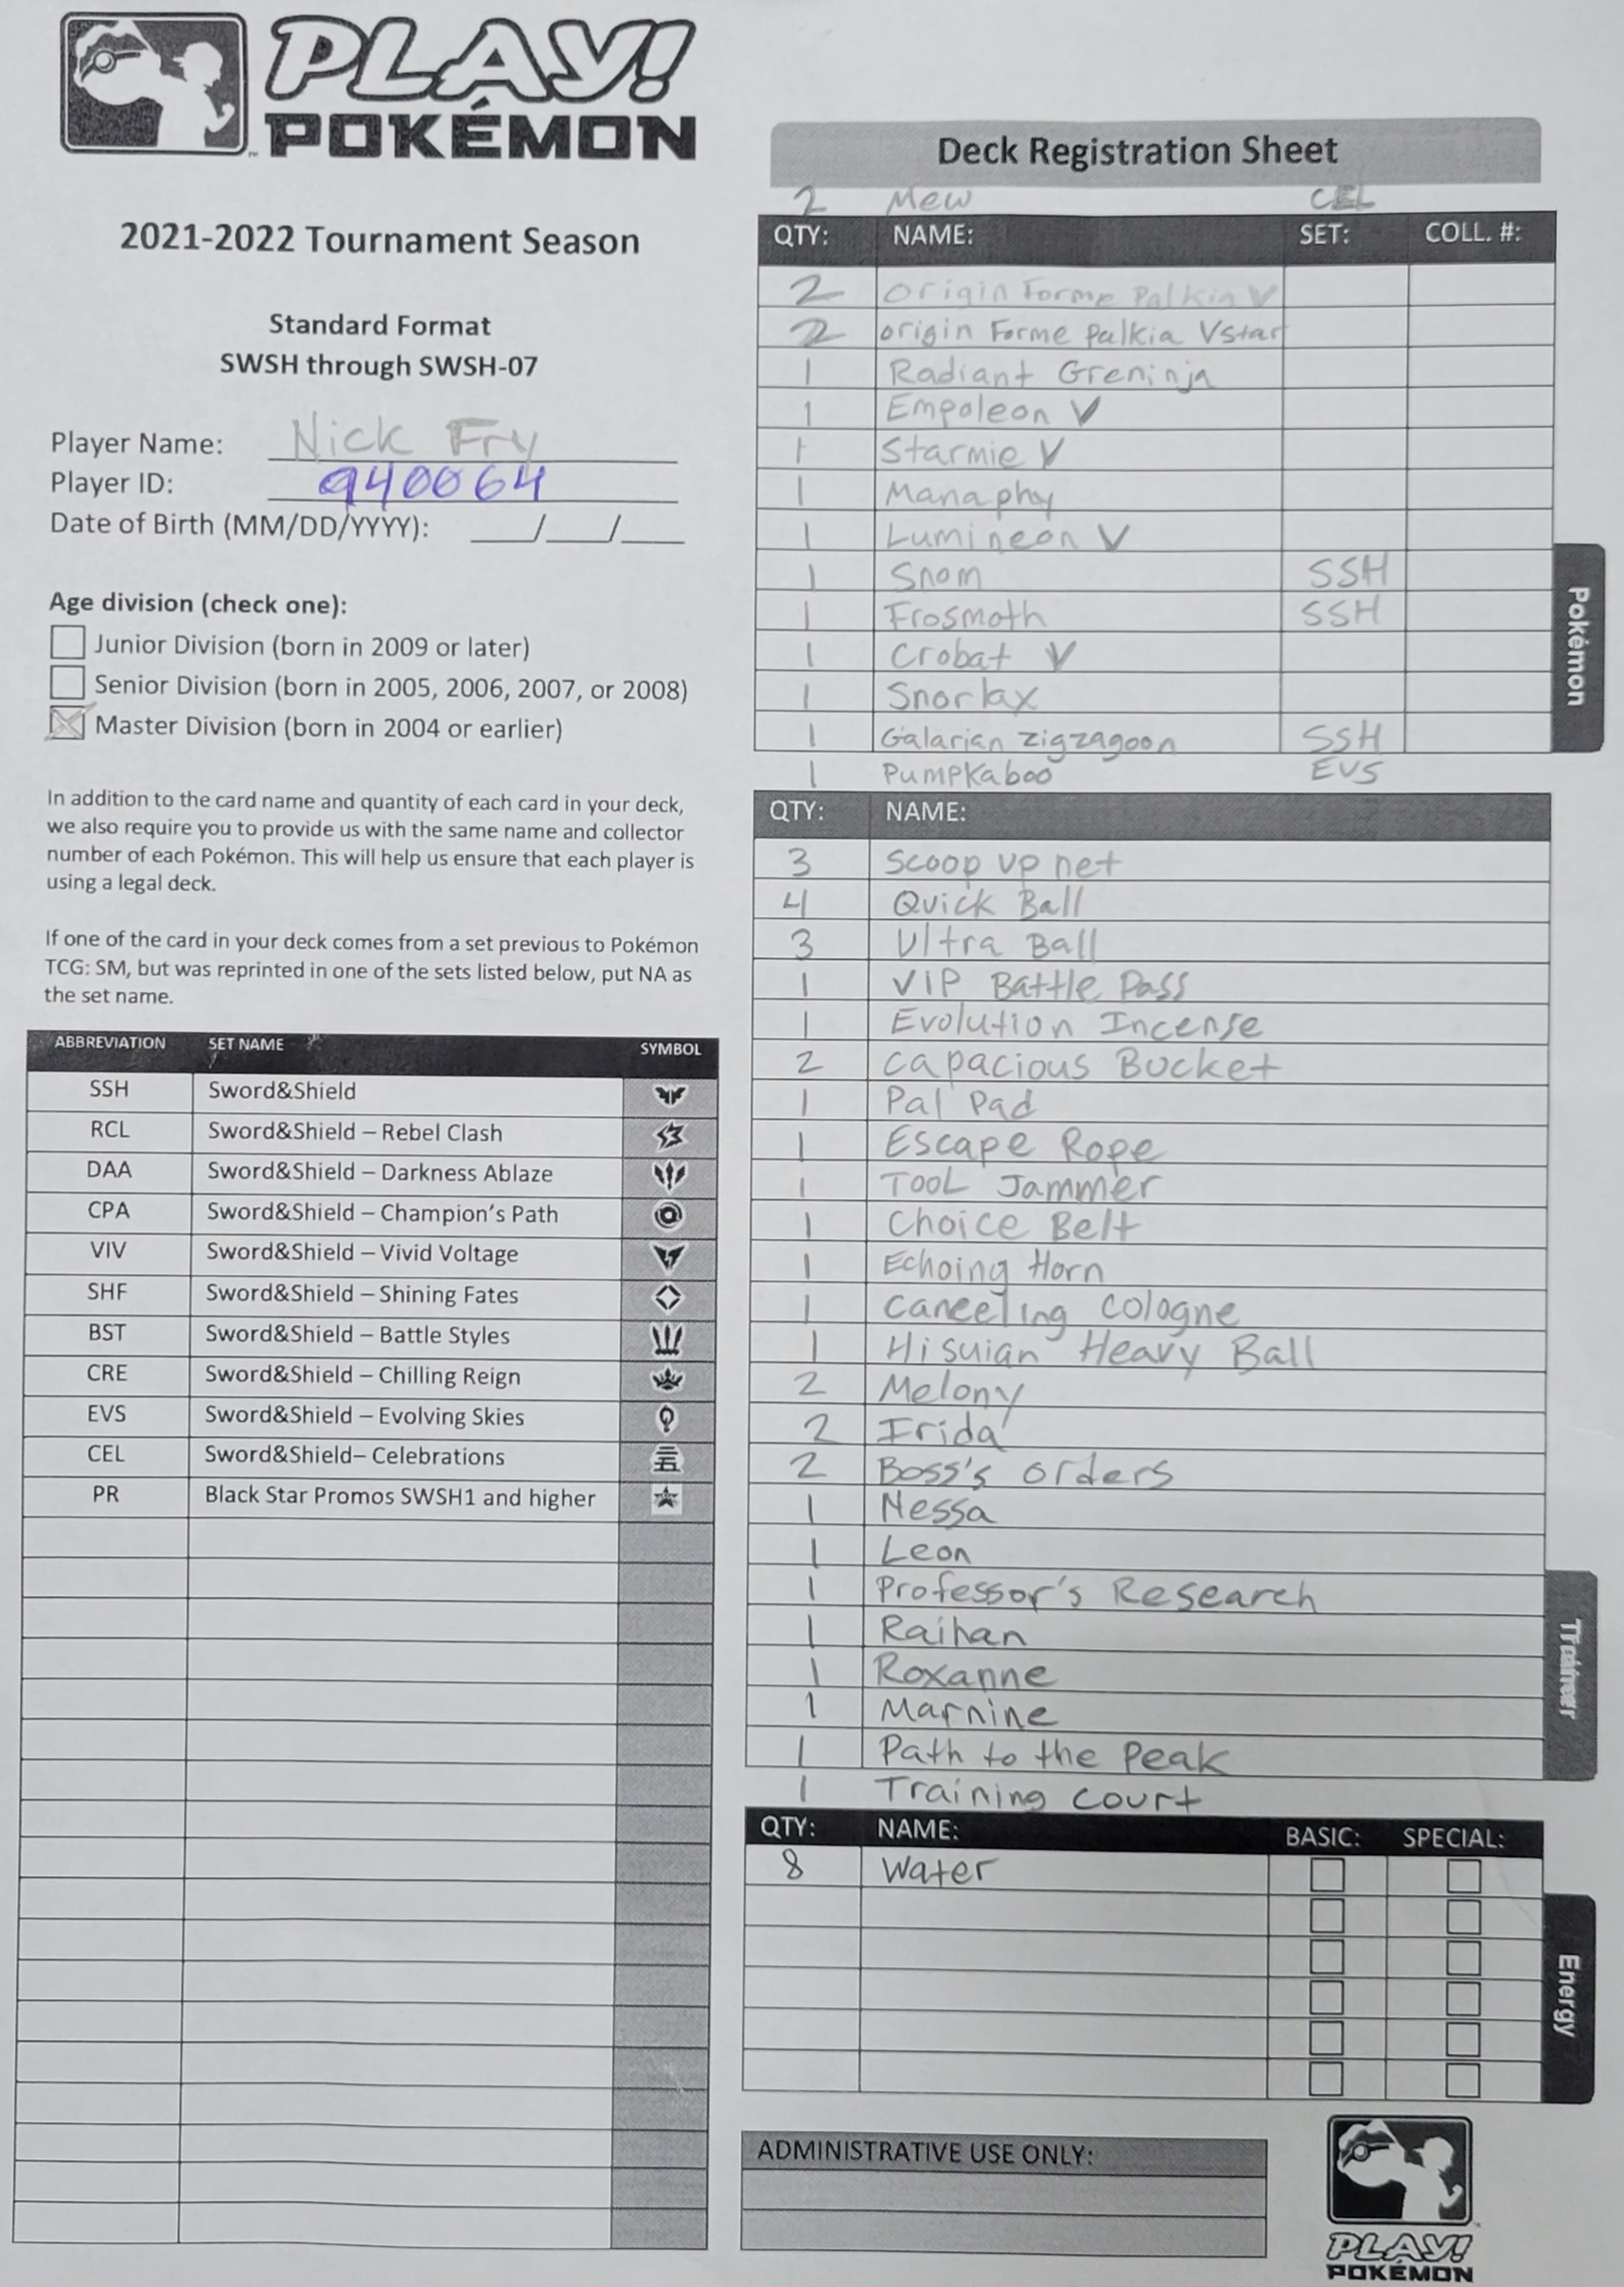 PLAY!
POKÉMON
2021-2022 Tournament Season
Standard Format
SWSH through SWSH-07
Player Name: Nick Fry
Player ID: 940064
Date of Birth (MM/DD/YYYY): ___/___/___
Age division (check one):
Junior Division (born in 2009 or later)
Senior Division (born in 2005, 2006, 2007, or 2008)
Master Division (born in 2004 or earlier)
In addition to the card name and quantity of each card in your deck,
we also require you to provide us with the same name and collector
number of each Pokémon. This will help us ensure that each player is
using a legal deck.
If one of the card in your deck comes from a set previous to Pokémon
TCG: SM, but was reprinted in one of the sets listed below, put NA as
the set name.
ABBREVIATION SET NAME SYMBOL
SSH Sword&Shield
RCL Sword&Shield – Rebel Clash
DAA Sword&Shield – Darkness Ablaze
CPA Sword&Shield – Champion's Path
VIV Sword&Shield – Vivid Voltage
SHF Sword&Shield – Shining Fates
BST Sword&Shield – Battle Styles
CRE Sword&Shield – Chilling Reign
EVS Sword&Shield – Evolving Skies
CEL Sword&Shield– Celebrations
PR Black Star Promos SWSH1 and higher
Deck Registration Sheet
2 Mew CEL
QTY: NAME: SET: COLL. #:
2 Origin Forme Palkia V
2 origin Forme Palkia Vstar
1 Radiant Greninja
1 Empoleon V
1 Starmie V
1 Manaphy
1 Lumineon V
1 Snom SSH
1 Frosmoth SSH
1 Crobat V
1 Snorlax
1 Galarian zigzagoon SSH
1 Pumpkaboo EVS
Pokémon
QTY: NAME:
3 Scoop up net
4 Quick Ball
3 Ultra Ball
1 VIP Battle Pass
1 Evolution Incense
2 capacious Bucket
1 Pal Pad
1 Escape Rope
1 TOOL Jammer
1 Choice Belt
1 Echoing Horn
1 canceling cologne
1 Hisuian Heavy Ball
2 Melony
2 Irida
2 Boss's orders
1 Nessa
1 Leon
1 Professor's Research
1 Raihan
1 Roxanne
1 Marnine
1 Path to the Peak
1 Training court
Trainer
QTY: NAME: BASIC: SPECIAL:
8 Water
Energy
ADMINISTRATIVE USE ONLY:
PLAY!
POKÉMON